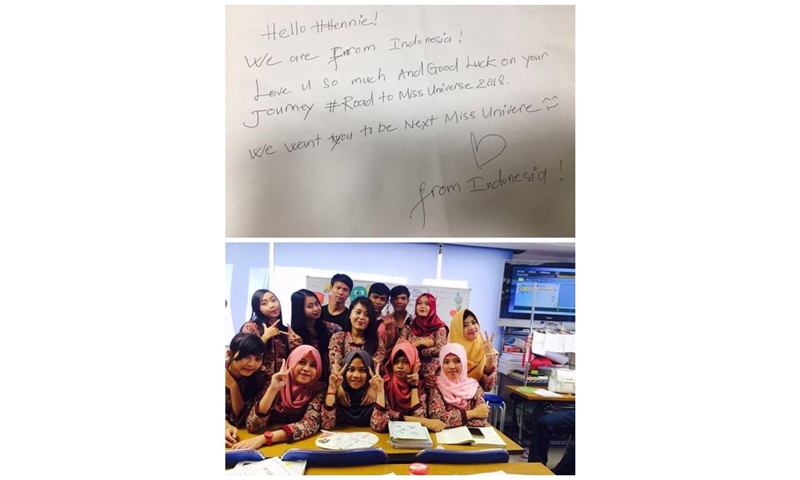 Hello HHennie!
We are From Indonesia!
Love u so much And Good Luck on your
Journey #Road to Miss Universe 2018.
We want you to be Next Miss Univere
from Indonesia!